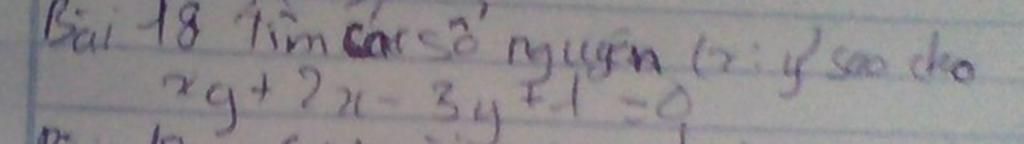 Bài 18 Tìm các số nguyên (x; y) sao cho
xy + 2x - 3y + 1 = 0